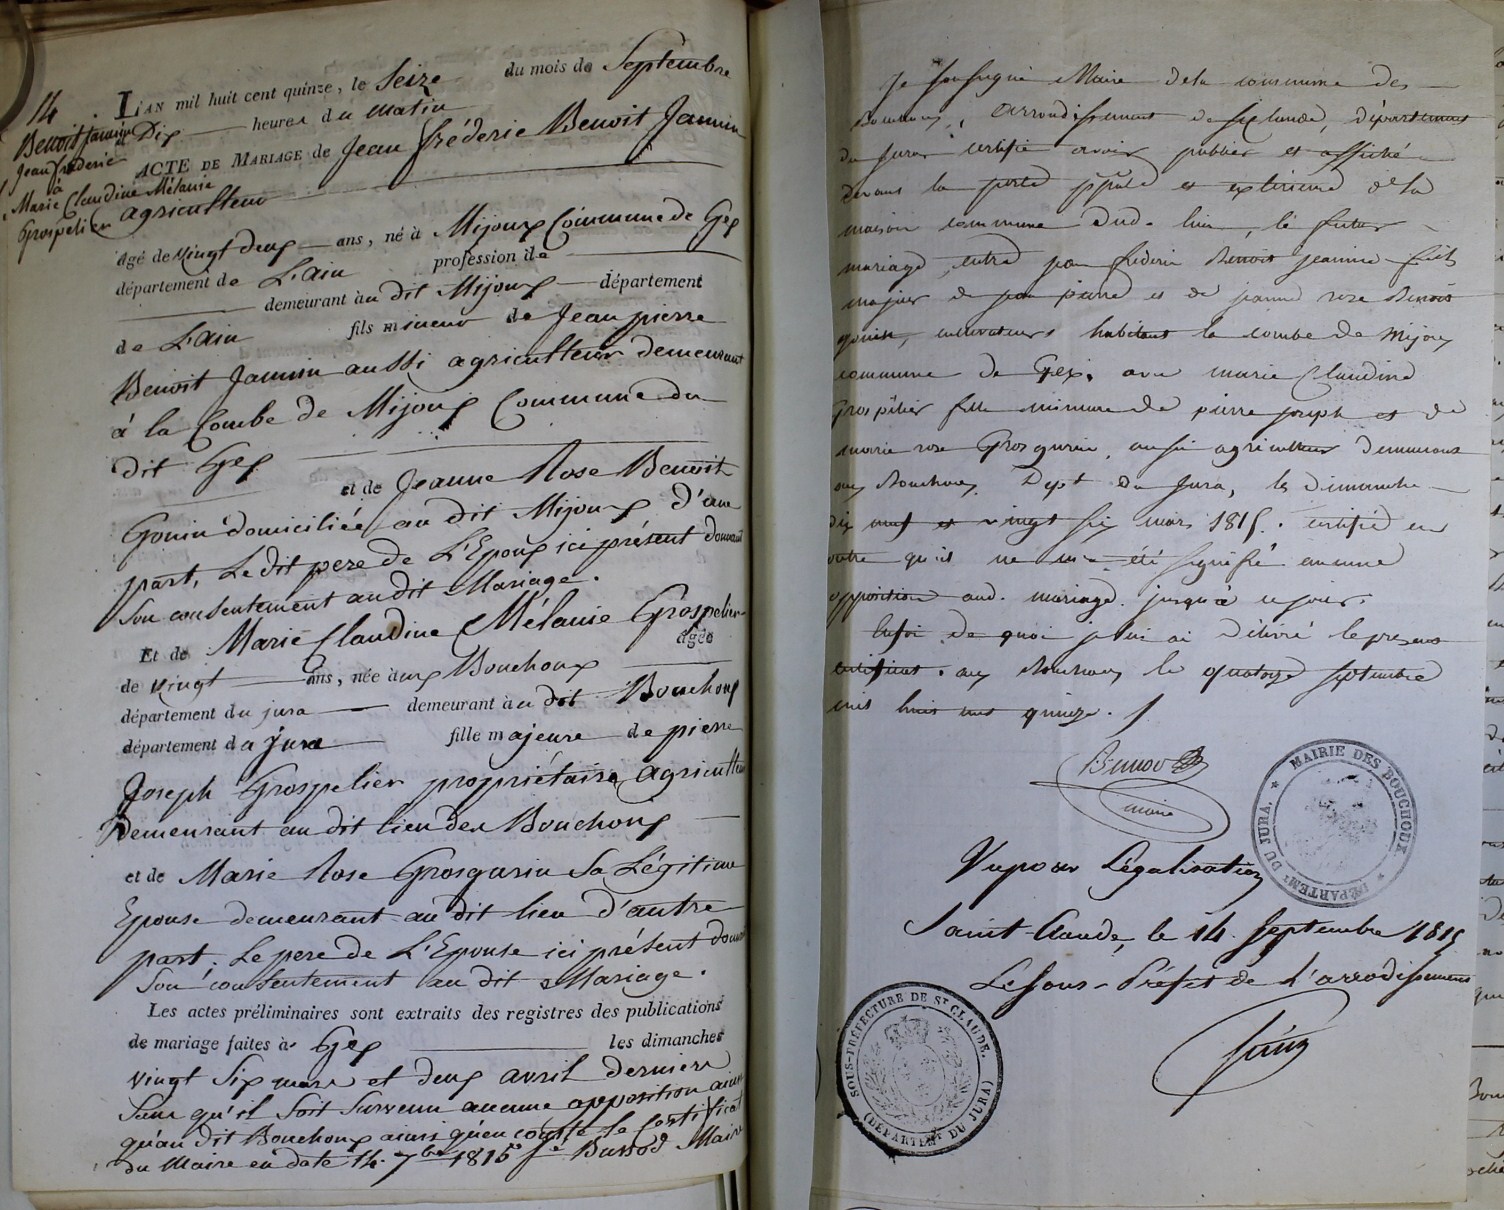 14
Benoit Jannin
Jean fréderic
à
Marie Claudine Mélanie
Grospelier
L'AN mil huit cent quinze, le Seize du mois de Septembre
Dix heures du matin
ACTE DE MARIAGE de Jean fréderic Benoit Jannin
agriculteur
âgé de vingt deux ans, né à Mijoux Commune de Gex
département de L'ain profession de
demeurant au dit Mijoux département
de L'ain fils mineur de Jean pierre
Benoit Jannin aussi agriculteur demeurant
à la Combe de Mijoux Commune du
dit Gex
et de Jeanne Rose Benoit
Gonin domiciliée au dit Mijoux d'une
part, Le dit pere de L'Epoux ici présent donnant
Son consentement au dit Mariage.
Et de Marie Claudine Mélanie Grospelier
âgée
de vingt ans, née aux Bouchoux
département du jura demeurant au dit Bouchoux
département du jura fille majeure de pierre
Joseph Grospelier propriétaire agriculteur
Demeurant au dit lieu des Bouchoux
et de Marie Rose Grosgurin Sa Légitime
Epouse demeurant au dit lieu d'autre
part. Le pere de L'Epouse ici présent donnant
Son consentement au dit Mariage.
Les actes préliminaires sont extraits des registres des publications
de mariage faites à Gex les dimanches
vingt Six mars et deux avril derniers
Sans qu'il Soit Survenu aucune opposition ainsi
qu'au dit Bouchoux ainsi qu'en conste le Certificat
du Maire en date 14. 7bre 1815 Sé Maire
Je soussigné Maire de la commune des
Bouchoux, arrondissement de St Claude, département
du Jura certifie avoir publier et affiché
devant la porte pple et exterieure de la
maison commune dud. lieu, le futur
mariage, entre jean frederic Benoit jeannin fils
majeur de jean pierre et de jeanne roze Benoit
gonin, cultivateurs habitant la combe de Mijoux
commune de Gex. avec marie Claudine
Grospélier fille mineure de pierre joseph et de
marie rose Grosgurin, aussi agriculteurs demeurant
aux Bouchoux Dept du Jura, les dimanche
dix neuf et vingt six mars 1815. certifié en
outre qu'il ne m'a été signifié aucune
opposition aud. mariage jusqu'à ce jour.
Enfoi de quoi je lui ai Délivré le present
certificat. aux Bouchoux le quatorze septembre
mil huit cent quinze.
maire
MAIRIE DES BOUCHOUX. * DÉPARTEMT. DU JURA. *
Vu pour Légalisation
Saint-Claude, le 14 Septembre 1815
Le Sous-Préfet de l'arrodissement
SOUS-PRÉFECTURE DE ST. CLAUDE. (DÉPARTEMT. DU JURA)